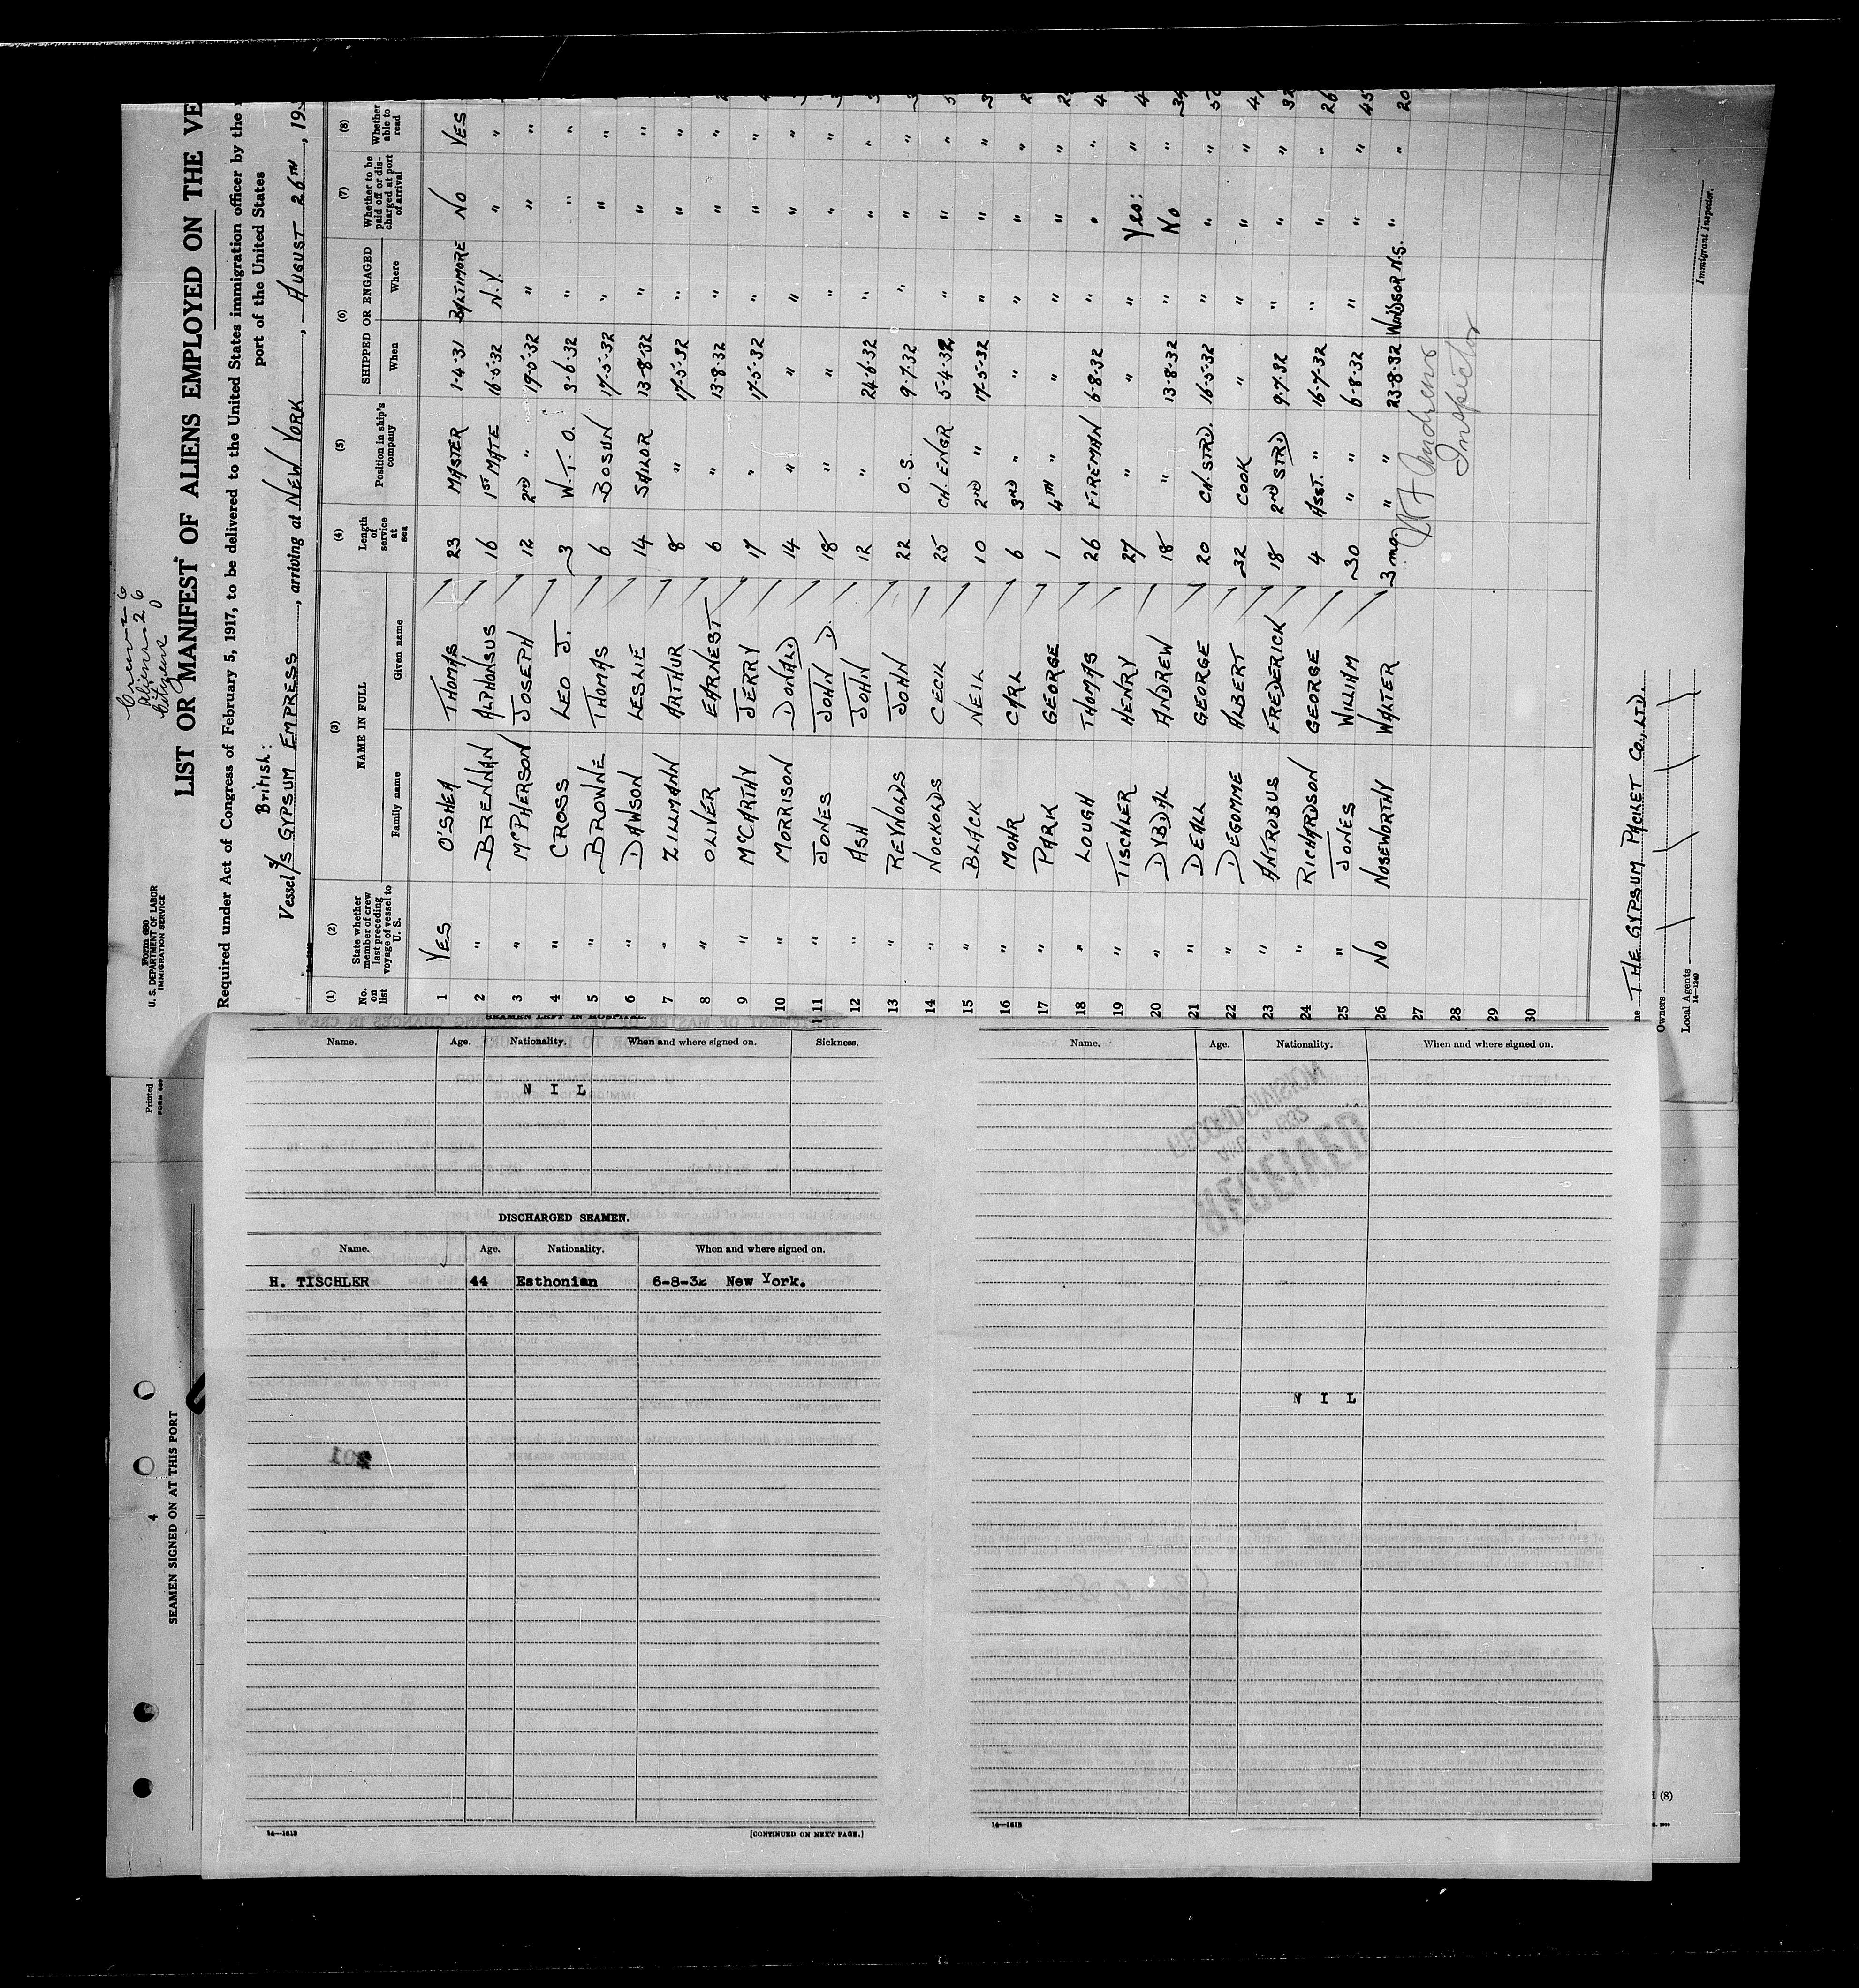 Crew 26
Aliens 26
Citizens 0
Form 680
U. S. DEPARTMENT OF LABOR
IMMIGRATION SERVICE
LIST OR MANIFEST OF ALIENS EMPLOYED ON THE VE
Required under Act of Congress of February 5, 1917, to be delivered to the United States immigration officer by the
port of the United States
British:
Vessel S/S GYPSUM EMPRESS, arriving at NEW YORK, AUGUST 26TH, 193
(1) (2) (3) (4) (5) (6) (7) (8)
No. on list State whether member of crew last preceding voyage of vessel to U. S. NAME IN FULL Family name Given name Length of service at sea Position in ship's company SHIPPED OR ENGAGED When Where Whether to be paid off or discharged at port of arrival Whether able to read
1 YES O'SHEA THOMAS 23 MASTER 1-4-31 BALTIMORE NO YES
2 " BRENNAN ALPHONSUS 16 1ST MATE 16-5-32 N.Y. " "
3 " McPHERSON JOSEPH 12 2ND " 19-5-32 " " "
4 " CROSS LEO J. 3 W.T.O. 3-6-32 " " "
5 " BROWNE THOMAS 6 BOSUN 17-5-32 " " "
6 " DAWSON LESLIE 14 SAILOR 13-8-32 " " "
7 " ZILLMANN ARTHUR 8 " 17-5-32 " " "
8 " OLIVER EARNEST 6 " 13-8-32 " " "
9 " McCARTHY JERRY 17 " 17-5-32 " " "
10 " MORRISON DONALD 14 " " " " "
11 " JONES JOHN D. 18 " " " " "
12 " ASH JOHN 12 " 24-6-32 " " "
13 " REYNOLDS JOHN 22 O.S. 9-7-32 " " "
14 " NOCKOLDS CECIL 25 CH. ENGR 5-4-32 " " "
15 " BLACK NEIL 10 2ND " 17-5-32 " " "
16 " MOHR CARL 6 3RD " " " " "
17 " PARK GEORGE 1 4TH " " " " "
18 " LOUGH THOMAS 26 FIREMAN 6-8-32 " " "
19 " TISCHLER HENRY 27 " " " Yes: "
20 " DYBDAL ANDREW 18 " 13-8-32 " No " 34
21 " DEALL GEORGE 20 CH. STRD. 16-5-32 " " "
22 " DEGOMME ALBERT 32 COOK " " " "
23 " ANTROBUS FREDERICK 18 2ND STRD 9-7-32 " " " 32
24 " RICHARDSON GEORGE 4 ASST. " 16-7-32 " " " 26
25 " JONES WILLIAM 30 " " 6-8-32 " " " 45
26 NO NOSEWORTHY WALTER 3 mo. " " 23-8-32 WINDSOR N.S. " " 20
27
28
29
30
Andrews
Inspector
THE GYPSUM PACKET CO., LTD.
Owners
Local Agents
14—1240
Immigrant Inspector.
Printed
SEAMEN SIGNED ON AT THIS PORT
4
SEAMEN LEFT IN HOSPITAL.
Name. Age. Nationality. When and where signed on. Sickness.
N I L
DISCHARGED SEAMEN.
Name. Age. Nationality. When and where signed on.
H. TISCHLER 44 Esthonian 6-8-32 New York.
201
14—1613 [CONTINUED ON NEXT PAGE.]
Name. Age. Nationality. When and where signed on.
RECORD DIVISION
RECEIVED
N I L
14—1613
(8)